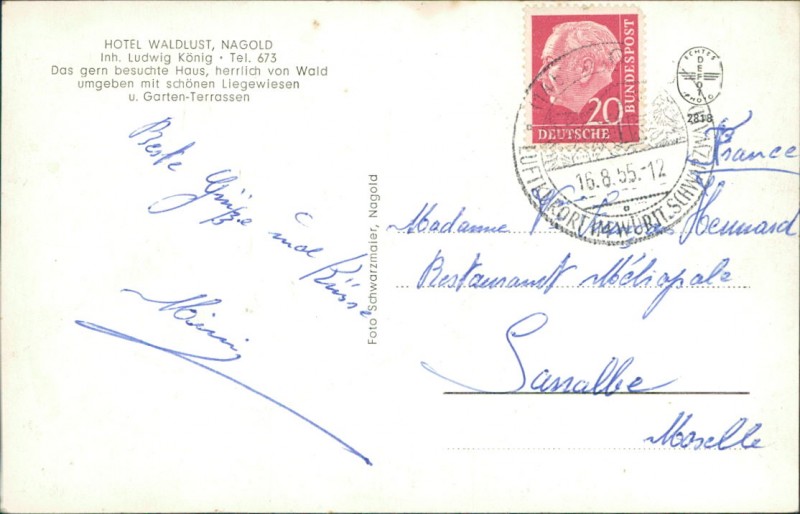 HOTEL WALDLUST, NAGOLD
Inh. Ludwig König · Tel. 673
Das gern besuchte Haus, herrlich von Wald
umgeben mit schönen Liegewiesen
u. Garten-Terrassen
Beste Grüße und Küsse
Foto Schwarzmaier, Nagold
20
DEUTSCHE
BUNDESPOST
16.8.55.-12
LUFTKURORT IM WÜRTT. SCHWARZWALD
ECHTES
DEFOT
PHOTO
2818
France
Madame Hennard
Restaurant Métropole
Sarralbe
Moselle